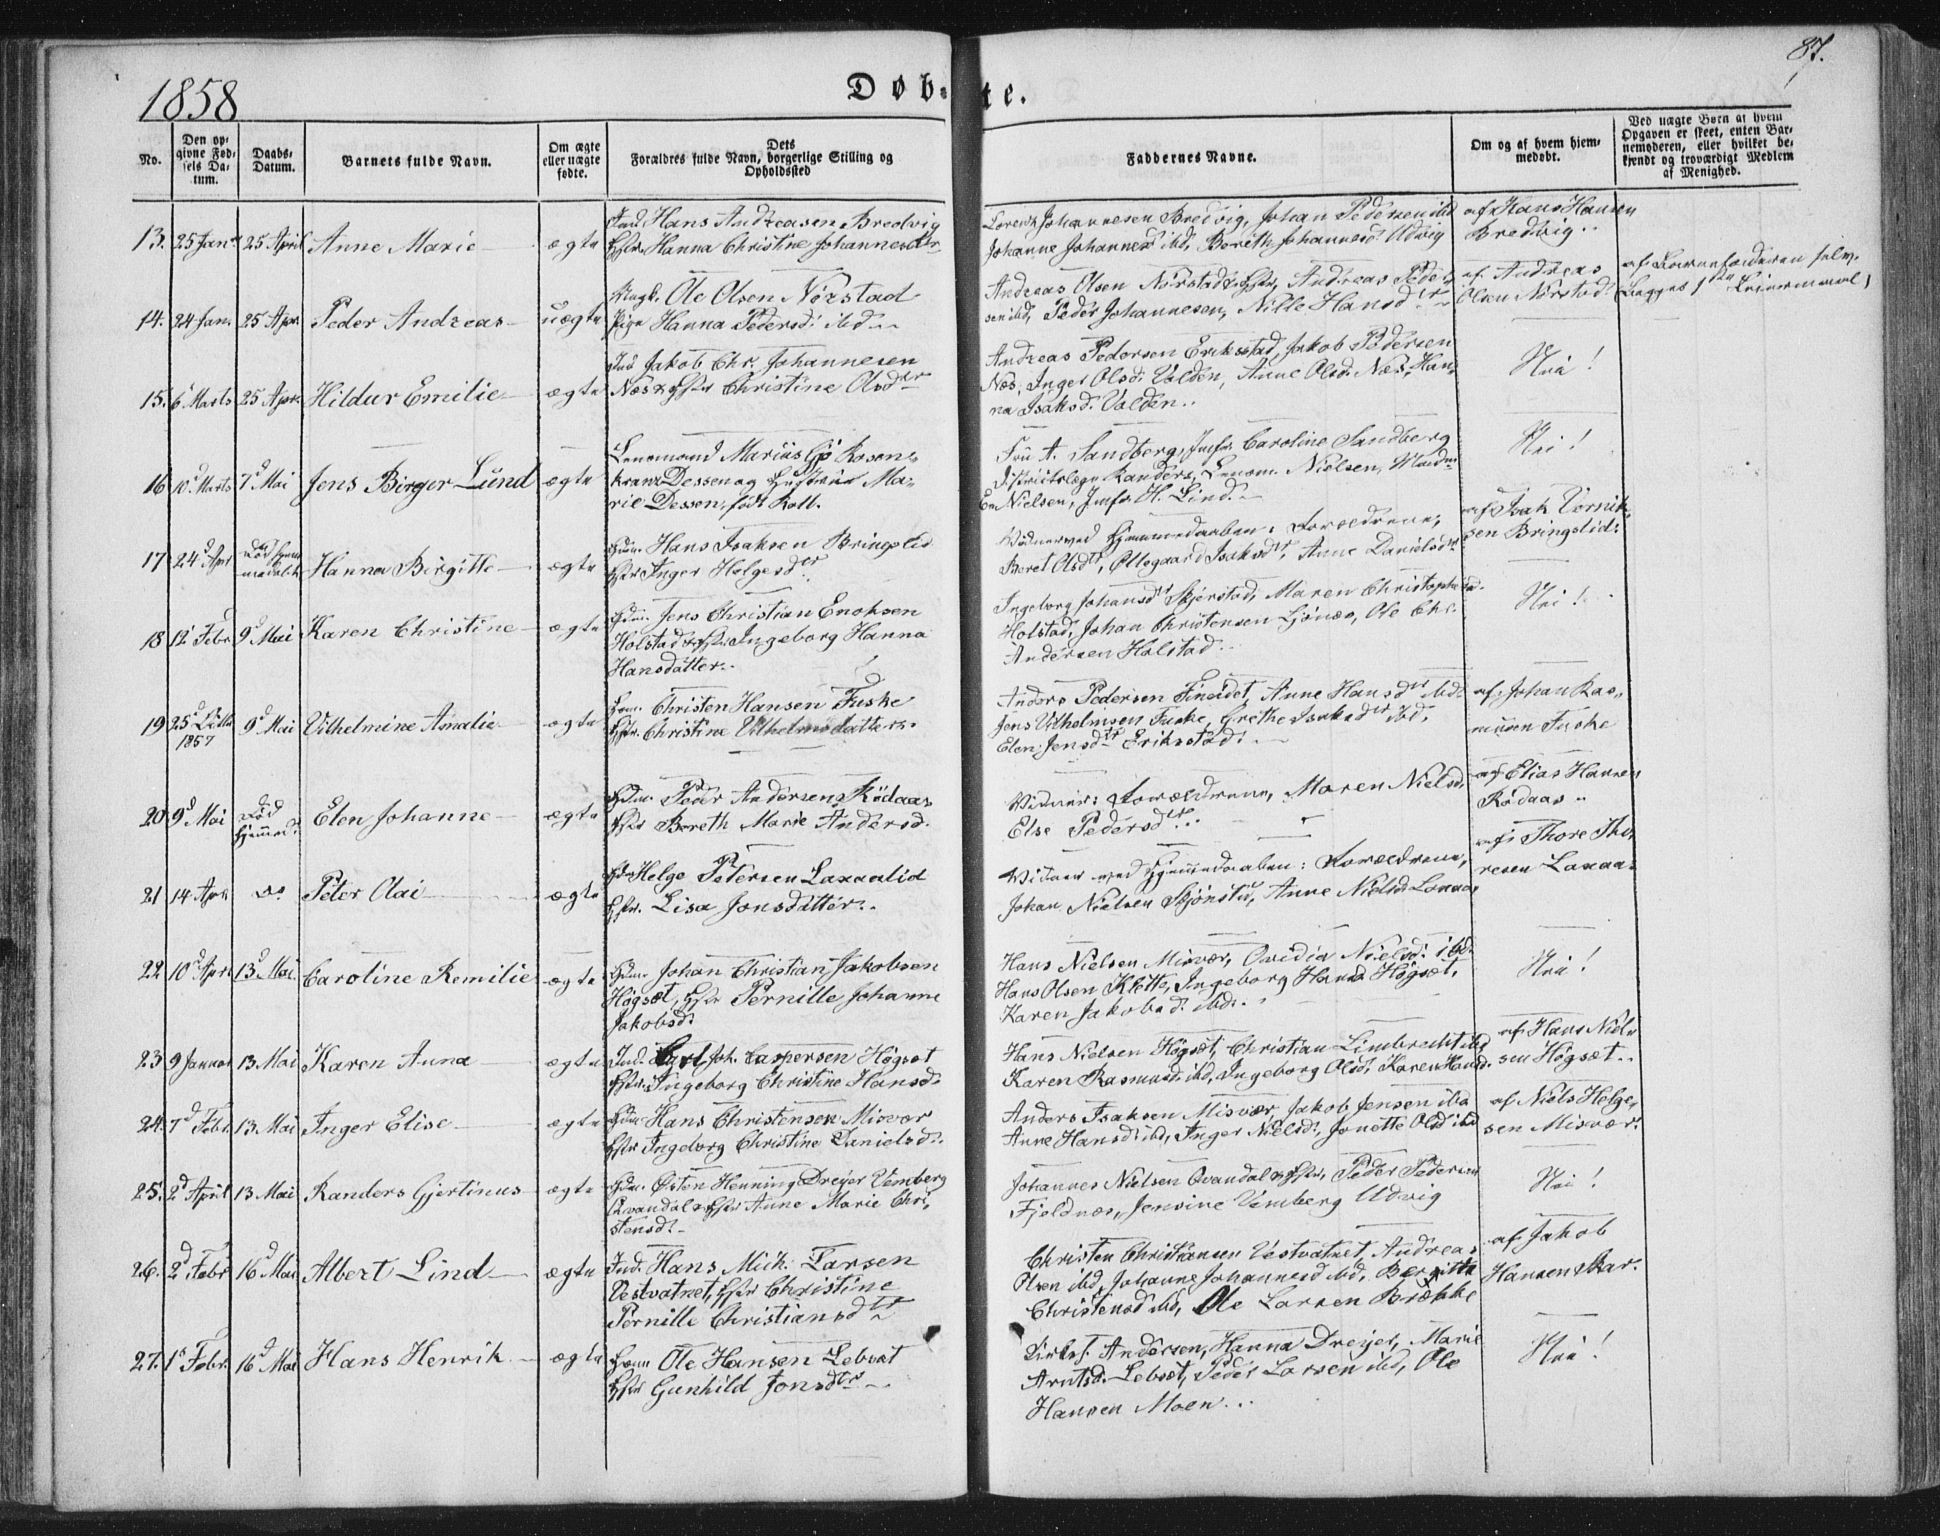 1858
Döb-
te.
87.
No.
Den op-
givne Fød-
sels Da-
tum.
Daabs-
Datum.
Barnets fulde Navn.
Om ægte
eller uægte
fødte.
Dets
Forældres fulde Navn, borgerlige Stilling og
Opholdssted
Faddernes Navne.
Om og af hvem hjem-
medøbt.
Ved uægte Børn af hvem
Opgaven er skeet, enten Bar-
nemoderen, eller hvilket be-
kjendt og troværdigt Medlem
af Menighed.
13. 25 Jan. 25 April Anne Marie ægte
Ind. Hans Andreasen Bredvig
Hstr. Hanna Christine Johannesdtr
Lorentz Johannesen Bredvig, Johan Pedersen ibd
Johanne Johannesd. ibd, Bereth Johannesd. Udvig
af Hans Hansen
Bredvig..
14. 24 Jan. 25 Apr. Peder Andreas uægte
Ungk. Ole Olsen Nörstad
Pige Hanna Pedersd. ibd
Andreas Olsen Nörstad & Hstr, Andreas Peder-
sen ibd, Peder Johannesen, Nille Hansdtr
af Andreas
Olsen Nörstad
af Barnefaderen selv.
Begges 1ste Leiermaal
15. 6 Marts 25 Apr. Hildur Emilie ægte
Ind Jakob Chr. Johannesen
Næs & Hstr Christine Olsdtr
Andreas Pedersen Erikstad, Jakob Pedersen
Næs, Inger Olsd. Valden, Anne Olsd. Næs, Han-
na Isaksd. Valden..
Nei!
16 10d Marts 7d Mai Jens Birger Lund ægte
Lensmand Marius Gjö Rosen-
kranz Dessen og Hustrue Ma-
rie Dessen, født Kolb.
Fru A. Sandberg, Jmfr. Caroline Sandberg
Districtslæge Randers, Lensm. Nielsen, Madm
Nielsen, Jmfr. H. Lind.
Nei!
17 24d Apr Død hjem-
medøbt Hanna Birgitte ægte
Hdm. Hans Isaksen Bringslid
Hstr Inger Helgesdtr
Vidner ved Hjemmedaaben: Forældrene,
Beret Olsdtr, Ollegaard Isaksdtr, Anne Danielsdtr
af Isak
sen Bringslid.
18 12 Febr 9d Mai Karen Christine ægte
Hdm. Jens Christian Enoksen
Holstad & Hstr. Ingeborg Hanna
Hansdatter..
Ingeborg Johansdtr Skjerstad, Maren Christophersd.
Holstad, Johan Christensen Ljönæs, Ole Chr.
Andersen Holstad..
Nei!
19 25d
1857 9d Mai Vilhelmine Amalie ægte
Hdm. Christen Hansen Fuske
Hstr. Christine Vilhelmsdatter.
Anders Pedersen Fineidet, Anne Hansdtr ibd.
Jens Vilhelmsen Fuske, Grethe Isaksdtr ibd,
Elen Jensdtr Erikstad.
af Johan Ras-
musen Fuske
20 9d Mai Død
Hjemmed. Elen Johanne ægte
Hdm. Peder Andersen Rödaas
Hstr Bereth Marie Andersd.
Vidner: Forældrene, Maren Nielsd.
Else Pedersdtr..
af Elias Hansen
Rödaas..
21 14 Apr. Do. Peter Olai ægte
Hdm Helge Petersen Laxaalid
Hstr. Lisa Jonsdatter..
Vidner ved Hjemmedaaben: Forældrene,
Johan Nielsen Skjönstu, Anne Nielsd.
af Thore Tho-
resen Laxaa.
22 10d Apr 13d Mai. Caroline Remilie ægte
Hdm. Johan Christian Jakobsen
Högsæt, Hstr Pernille Johanne
Jakobsd.
Hans Nielsen Misvær, Ovidia Nielsd. ibd.
Hans Olsen Klette, Ingeborg Hansd. Högsæt,
Karen Jakobsd. ibd..
Nei!
23 9 Januar 13 Mai Karen Anna ægte
Ind. Joh. Caspersen Högsæt
Hstr. Ingeborg Christine Hansd.
Hans Nielsen Högsæt, Christian Limbrecht ibd
Karen Rasmusd. ibd, Ingeborg Olsd. Karen Hansd.
af Hans Niel-
sen Högsæt..
24. 7d Febr. 13 Mai Inger Elise ægte
Hdm Hans Christensen Misvær
Hstr Ingeborg Christine Danielsd.
Anders Isaksen Misvær, Jakob Jensen ibd
Anne Hansd. ibd, Inger Nielsd, Jonette Olsd ibd
af Niels Helge-
sen Misvær.
25. 2d April 13 Mai Randers Gjertinus ægte
Hdm. Östen Henning Dreyer Vemberg
Qvandal & Hstr Anne Marie Chri-
stensd.
Johannes Nielsen Qvandal & Hstr, Peder Pedersen
Fjeldnæs, Jensine Vemberg Udvig
Nei!
26. 2d Febr 16d Mai Albert Lind ægte
Ind. Hans Mich. Larsen
Vestvatnet, Hstr Christine
Pernille Christiansdtr
Christen Christiansen Vestvatnet, Andreas
Olsen ibd, Johanne Johannesd ibd, Bergitte
Christensd ibd, Ole Larsen Brække
af Jakob
Hansen Skar.
27. 1s Febr. 16d Mai Hans Henrik ægte
Hdm Ole Hansen Lebsæt
Hstr Gunhild Jonsdtr
Andersen, Hanna Dreyer, Marie
Arntsd. Lebsæt, Peder Larsen ibd, Ole
Hansen Moen...
Nei!